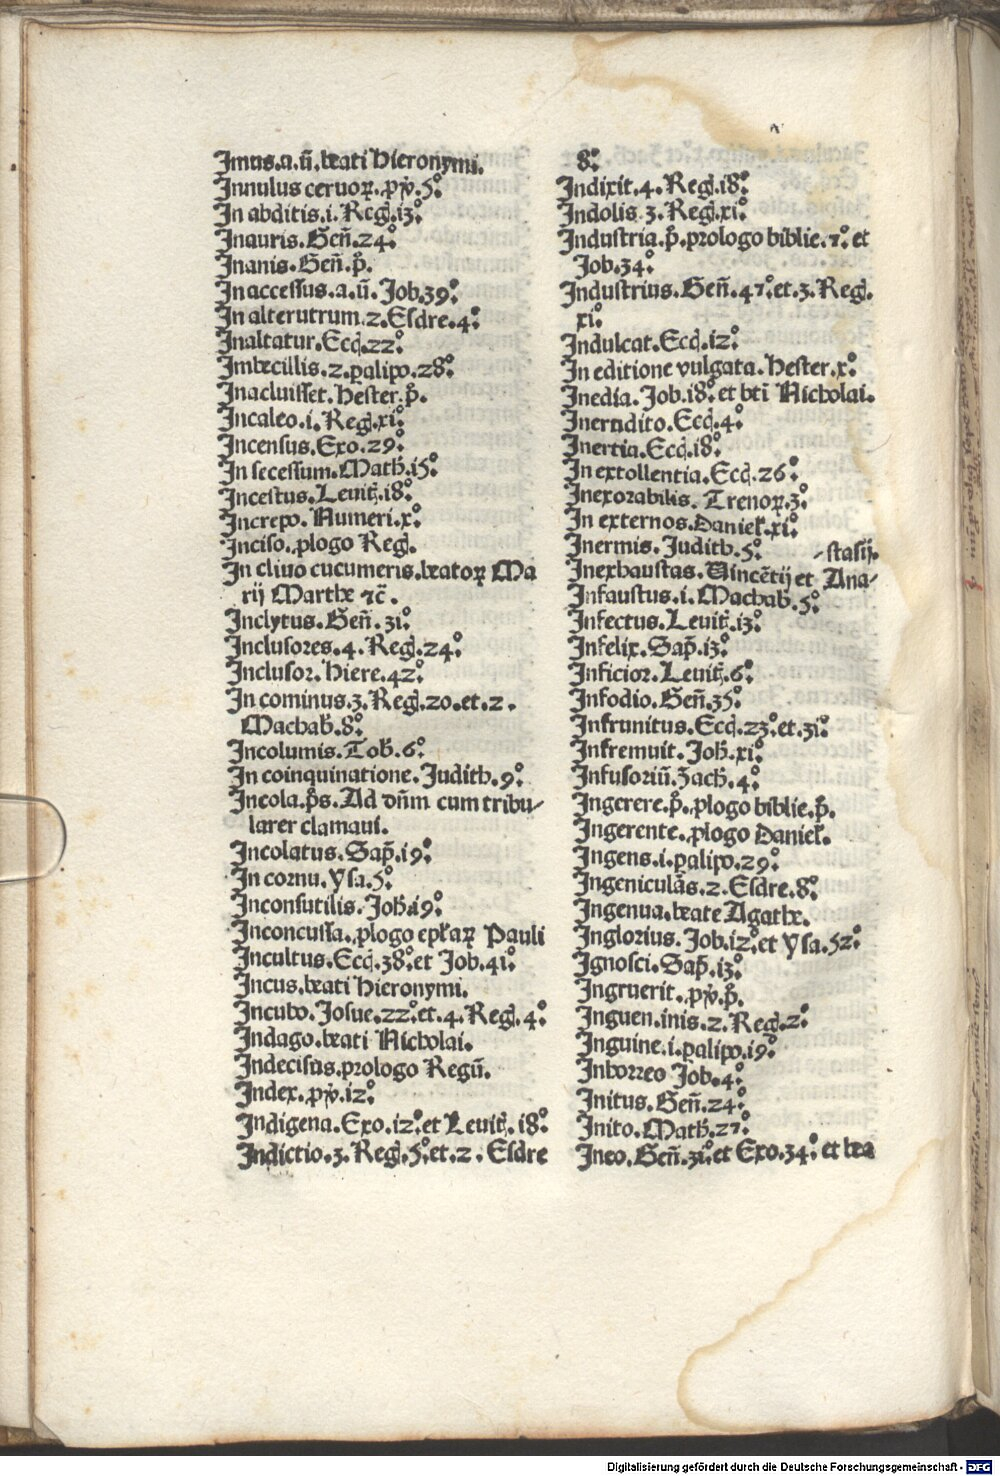 Imus.a.ū.beati Hieronymi.
Innulus ceruoꝝ.pꝟ.5°.
In abditis.i.Reg.i3°.
Inauris.Geñ.24°.
Inanis.Geñ.p̄.
In accessus.a.ū.Job.39°.
In alterutrum.2.Esdre.4°.
Inaltatur.Eccl.22°.
Imbecillis.2.ꝑalipo.28°.
Inacluisset.Hester.p̄.
Incaleo.i.Reg.xi°.
Incensus.Exo.29°.
In secessum.Math.i5°.
Incestus.Leuit.i8°.
Increpo.Numeri.x°.
Inciso.ꝓlogo Reg.
In cliuo cucumeris.beatoꝝ Ma
rij Marthe ⁊c̄.
Inclytus.Geñ.3i°.
Inclusores.4.Reg.24°.
Inclusor.Hiere.42°.
In cominus.3.Reg.20.et.2.
Machab.8°.
Incolumis.Tob.6°.
In coinquinatione.Judith.9°.
Incola.p̄s.Ad dñm cum tribu⸗
larer clamaui.
Incolatus.Sap̄.i9°.
In cornu.Ysa.5°.
Inconsutilis.Joh.i9°.
Inconcussa.ꝓlogo ep̄laꝝ Pauli
Incultus.Eccl.38°.et Job.4i°.
Incus.beati Hieronymi.
Incubo.Josue.22°.et.4.Reg.4°.
Indago.beati Nicholai.
Indecisus.prologo Regū.
Index.pꝟ.i2°.
Indigena.Exo.i2°.et Leuit.i8°.
Indictio.3.Reg.5°.et.2.Esdre
8°.
Indixit.4.Reg.i8°.
Indolis.3.Reg.xi°.
Industria.p̄.prologo biblie.7°.et
Job.34°.
Industrius.Geñ.47°.et.3.Reg.
xi°.
Indulcat.Eccl.i2°.
In editione vulgata.Hester.x°.
Inedia.Job.i8°.et bti Nicholai.
Inerudito.Eccl.4°.
Inertia.Eccl.i8°.
In extollentia.Eccl.26°.
Inexorabilis.Trenoꝝ.3°.
In externos.Daniel.xi°.
Inermis.Judith.5°. ⸗stasij.
Inexhaustas.Vincētij et Ana⸗
Infaustus.i.Machab.5°.
Infectus.Leuit.i3°.
Infelix.Sap̄.i3°.
Inficior.Leuit.6°.
Infodio.Geñ.35°.
Infrunitus.Eccl.23°.et.3i°.
Infremuit.Joh.xi°.
Infusoriū.Zach.4°.
Ingerere.p̄.ꝓlogo biblie.p̄.
Ingerente.ꝓlogo Daniel.
Ingens.i.ꝑalipo.29°.
Ingeniculās.2.Esdre.8°.
Ingenua.beate Agathe.
Inglorius.Job.i2°.et Ysa.52°.
Ignosci.Sap̄.i3°.
Ingruerit.pꝟ.p̄.
Inguen.inis.2.Reg.2°.
Inguine.i.ꝑalipo.i9°.
Inhorreo Job.4°.
Initus.Geñ.24°.
Inito.Math.27°.
Ineo.Geñ.3i°.et Exo.34°.et bea
Digitalisierung gefördert durch die Deutsche Forschungsgemeinschaft - DFG